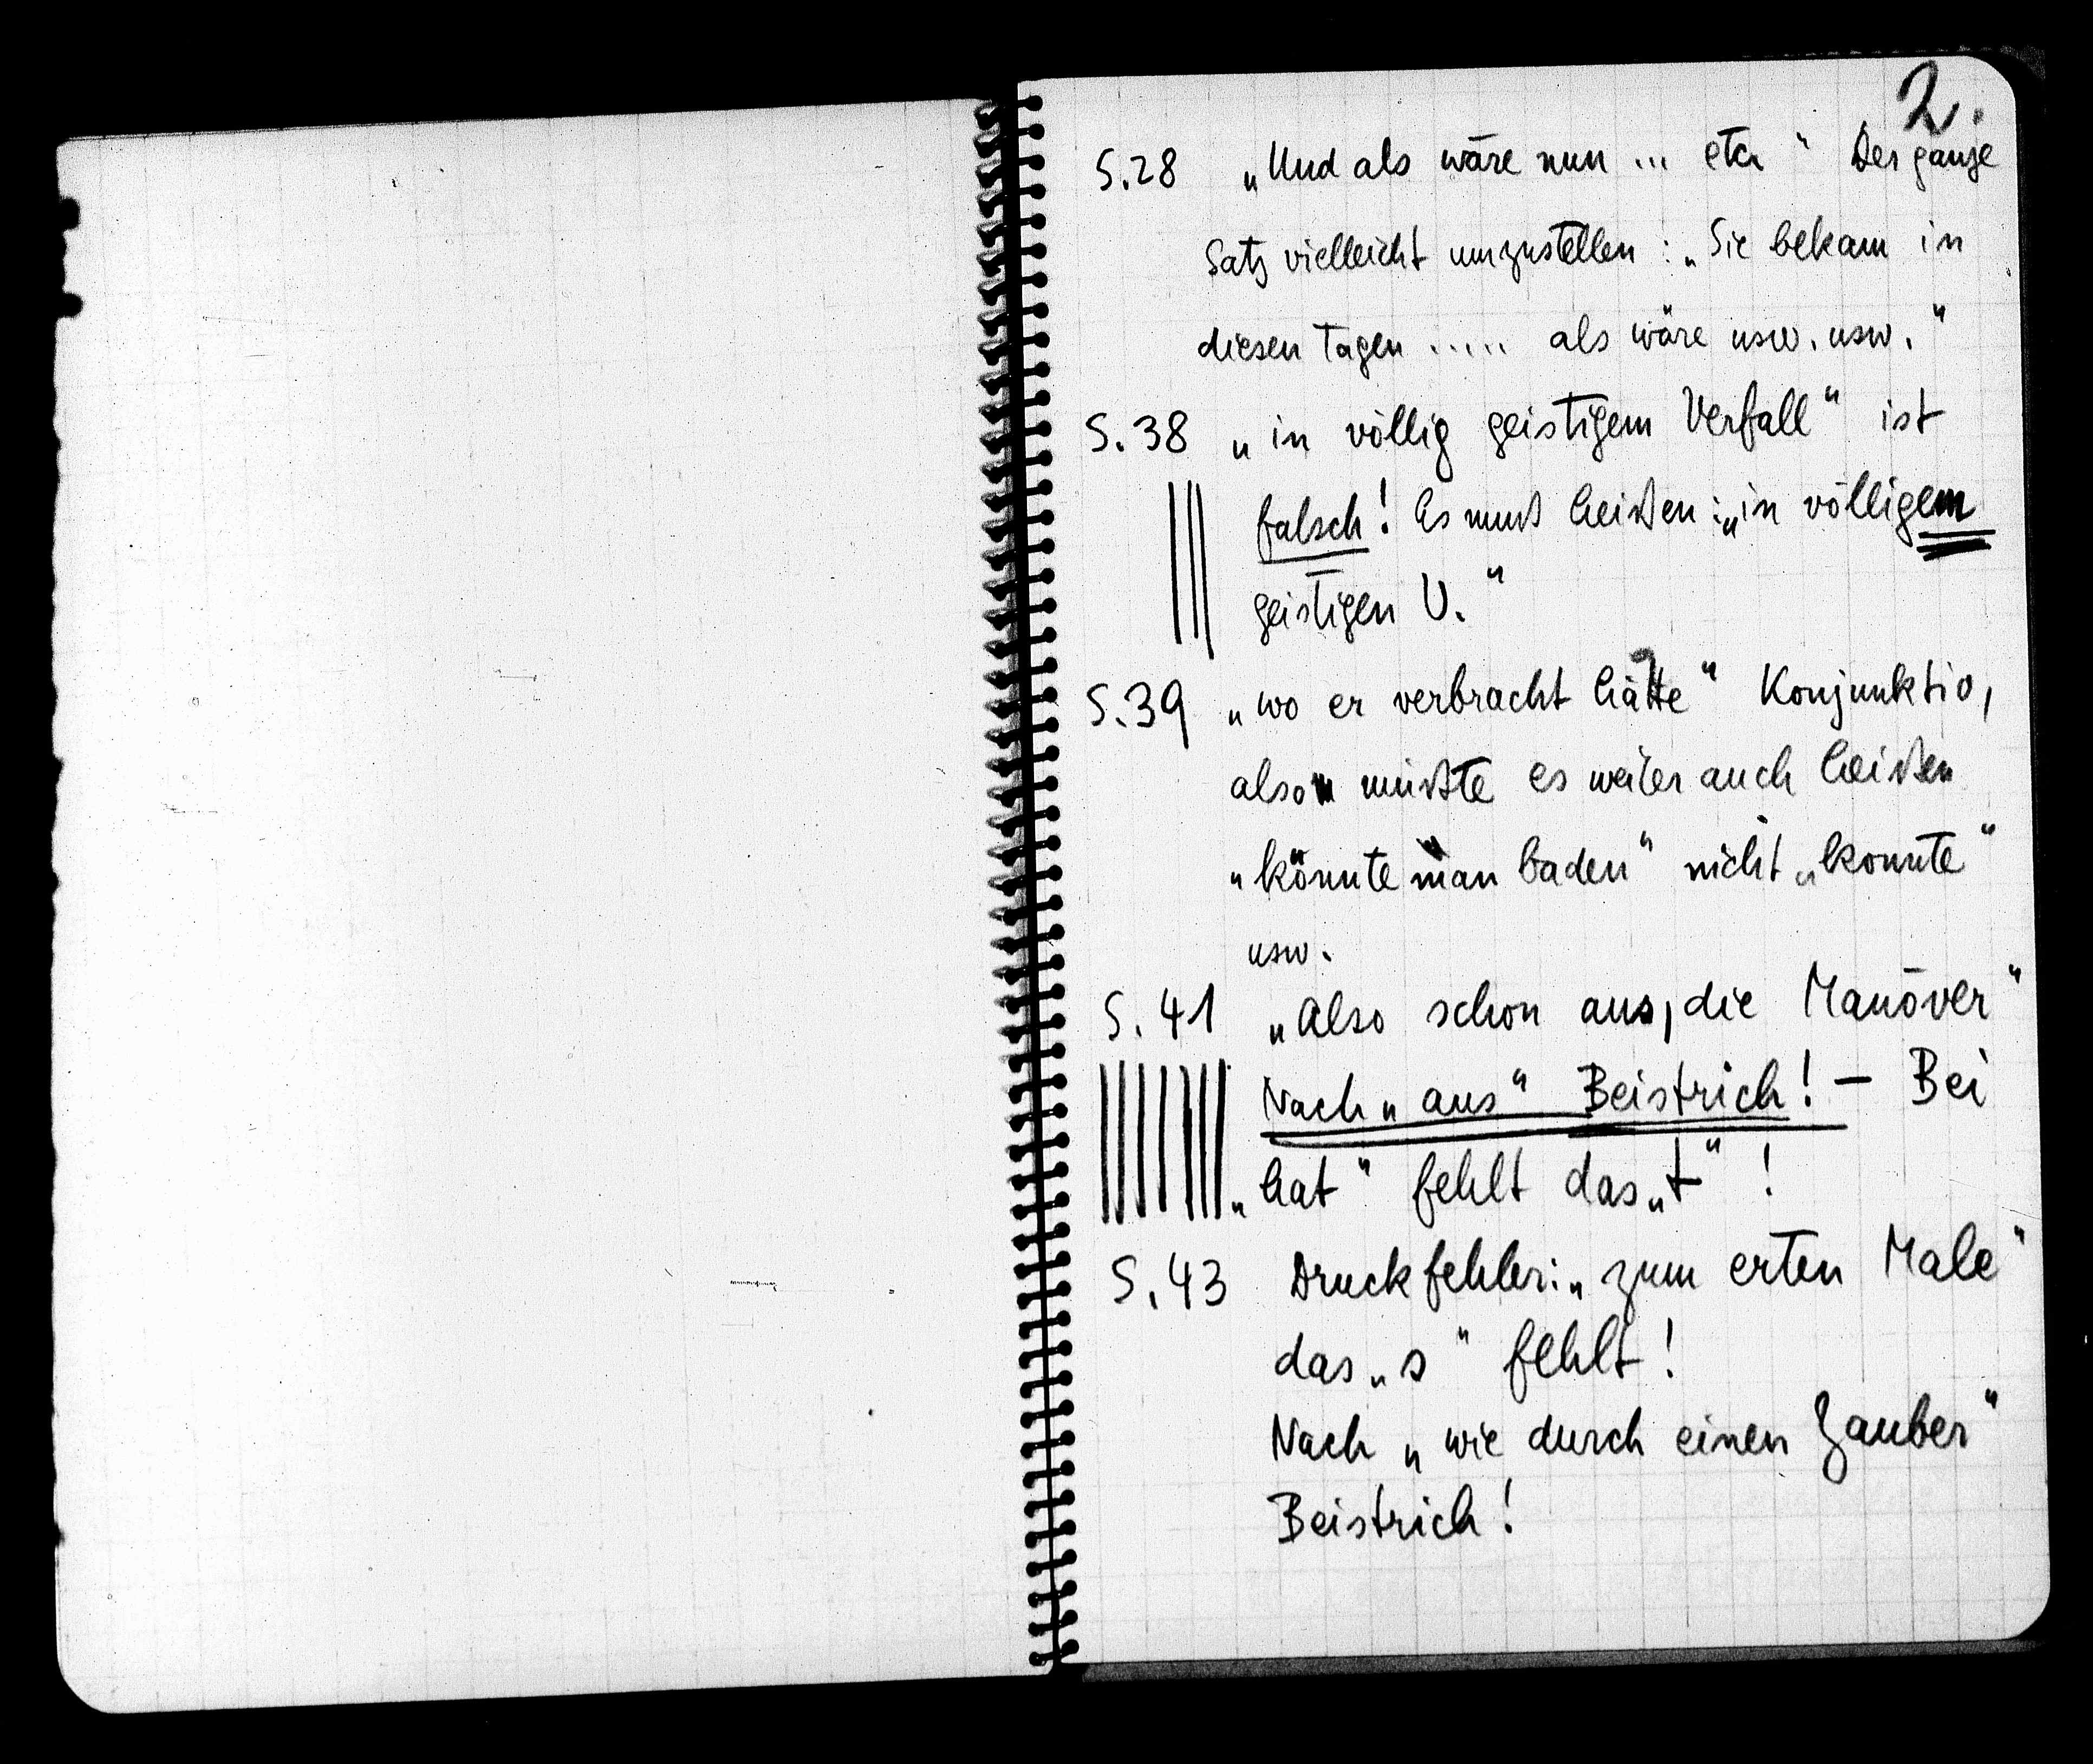 2.
S.28 „Und als wäre nun ... etc“ Der ganze
Satz vielleicht umzustellen: „Sie bekam in
diesen Tagen ..... als wäre usw. usw.“
S.38 „in völlig geistigem Verfall“ ist
falsch! Es muß heißen: „in völligem
geistigen V.“
S.39 „wo er verbracht hätte“ Konjunktiv,
also müßte es weiter auch heißen
„könnte man baden“ nicht „konnte“
usw.
S. 41 „Also schon aus, die Manöver“
Nach „aus“ Beistrich! – Bei
„hat“ fehlt das „t“!
S. 43 Druckfehler: „zum erten Male“
das „s“ fehlt!
Nach „wie durch einen Zauber“
Beistrich!